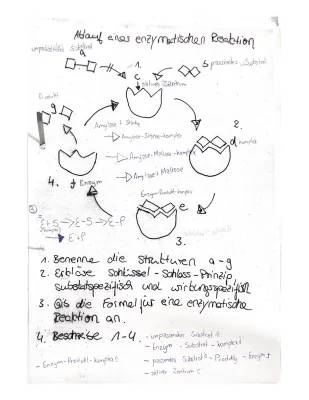 Ablauf eines enzymatischen Reaktion
unpassendes Substrat
a
1.
c
b passendes Substrat
aktives Zentrum
Produkt
g
2.
d komplex
Amylose + Stärke
Amylose-Stärke-komplex
Amylose-Maltose-komplex
Amylose + Maltose
4.
f Enzym
Enzym-Produkt-komplex
e
3.
E+S → E-S → E-P
E+P
1. Benenne die Strukturen a-g
2. Erkläre Schlüssel-Schloss-Prinzip,
substratspezifisch und wirkungsspezifisch
3. Gib die Formel für eine enzymatische
Reaktion an.
4. Beschreibe 1-4.
- unpassendes Substrat a
- Enzym - Substrat - komplex d
- passendes Substrat b - Produkt g - Enzym f
- aktives Zentrum c
- Enzym-Produkt-komplex e